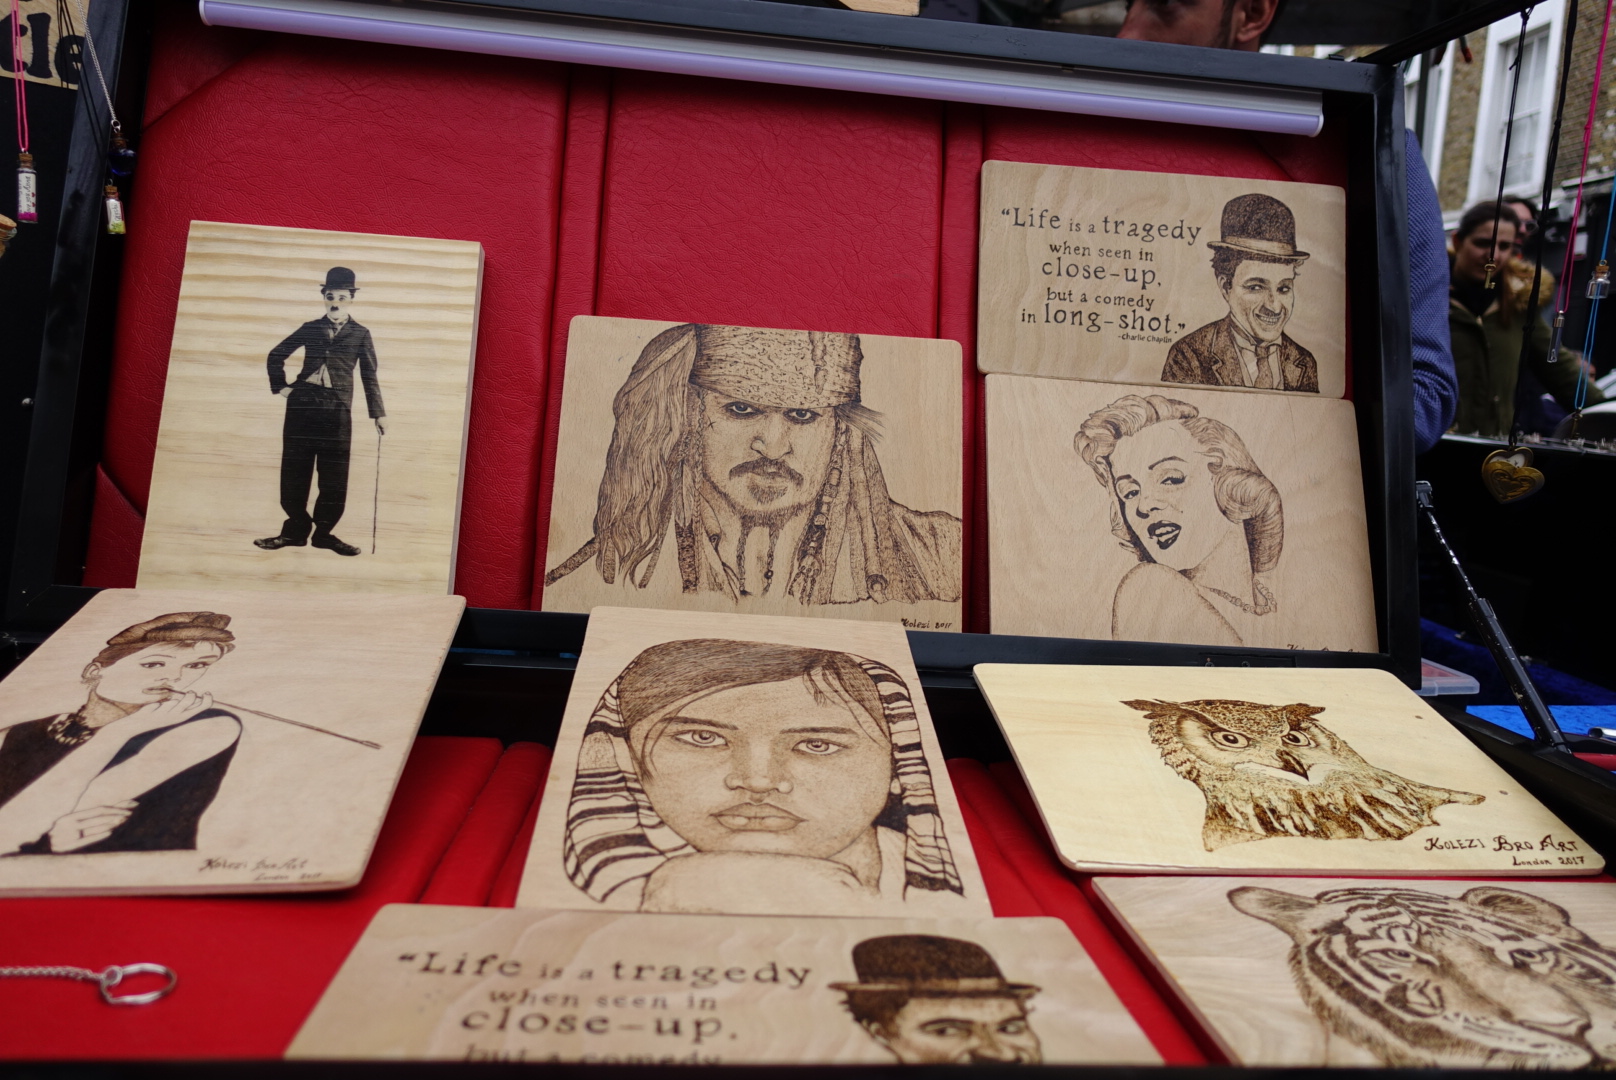 tle
“Life is a tragedy
when seen in
close-up,
but a comedy
in long-shot.”
-Charlie Chaplin
Kolezi
Kolezi Bro Art
London
KOLEZI BRO ART
London 2017
“Life is a tragedy
when seen in
close-up.
but a comedy